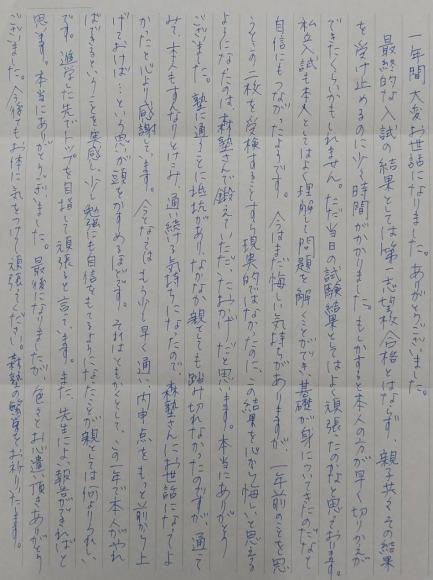 一年間大変お世話になりました。ありがとうございました。
最終的な入試の結果としては第一志望校合格とはならず、親子共々その結果
を受け止めるのに少々時間がかかりました。もしかすると本人の方が早く切りかえが
できたくらいかもしれません。ただ当日の試験結果としてはよく頑張ったのかなと思っております。
私立入試も本人としてはよく理解して問題を解くことができ、基礎が身についてきたのだなと
自信にもつながったようです。今はまだ悔しい気持ちがありますが、一年前のことを思
うとこの二校を受検することすら現実的ではなかったのに、この結果を心から悔しいと思える
ようになったのは、森塾さんで鍛えていただいたおかげだと思います。本当にありがとう
ございました。塾に通うことに抵抗があり、なかなか親としても踏み切れなかったのですが、通って
みて、本人もすんなりとけこみ、通い続ける気持ちになったので、森塾さんにお世話になってよ
かったと心より感謝してます。今となってはもう少し早く通い、内申点をもっと前から上
げておけば…という思いが頭をかすめるほどです。それはともかくとして、この一年で本人がやれ
ばできるということを実感し、少し勉強にも自信をもてるようになったことが親としては何よりうれしい
です。進学した先でトップを目指して頑張ると言ってます。また、先生によい報告ができればと
思います。本当にありがとうございました。最後になりましたが、色々とお心遣い頂きありがとう
ございました。今後もお体に気をつけて頑張ってください。森塾の繁栄をお祈りいたします。